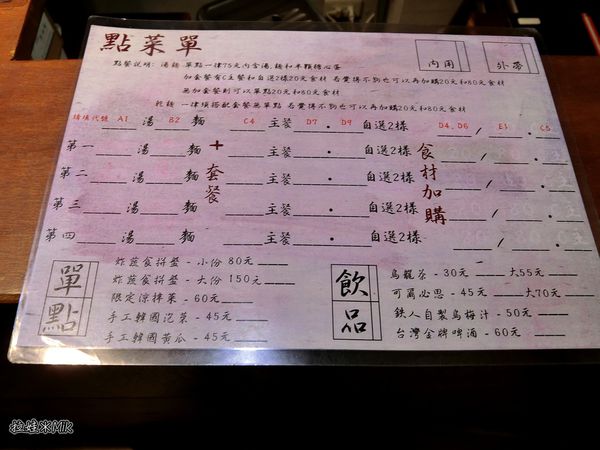 點菜單
內用
外帶
點餐說明: 湯麵 單點一律75元內含湯.麵和半顆糖心蛋
加套餐有C主餐和自選2樣20元食材 若覺得不夠也可以再加購20元和80元食材
無加套餐則可以單點20元和80元食材
乾麵 一律須搭配套餐無單點 若覺得不夠也可以再加購20元和80元食材
請填代號 A1 湯 B2 麵 C4 主餐 D7 . D9 自選2樣 D4.D6 / E1 . C5
第一 湯 麵 + 主餐 . 自選2樣 / .
第二 湯 麵 主餐 . 自選2樣 / .
第三 湯 麵 主餐 . 自選2樣 / .
第四 湯 麵 主餐 . 自選2樣 / .
套餐
食材加購
單點
炸蔬食拼盤 - 小份 80元
炸蔬食拼盤 - 大份 150元
限定涼拌菜 - 60元
手工韓國泡菜 - 45元
手工韓國黃瓜 - 45元
飲品
烏龍茶 - 30元 大55元
可爾必思 - 45元 大70元
鉄人自製烏梅汁 - 50元
台灣金牌啤酒 - 60元
拉娃米Mlk